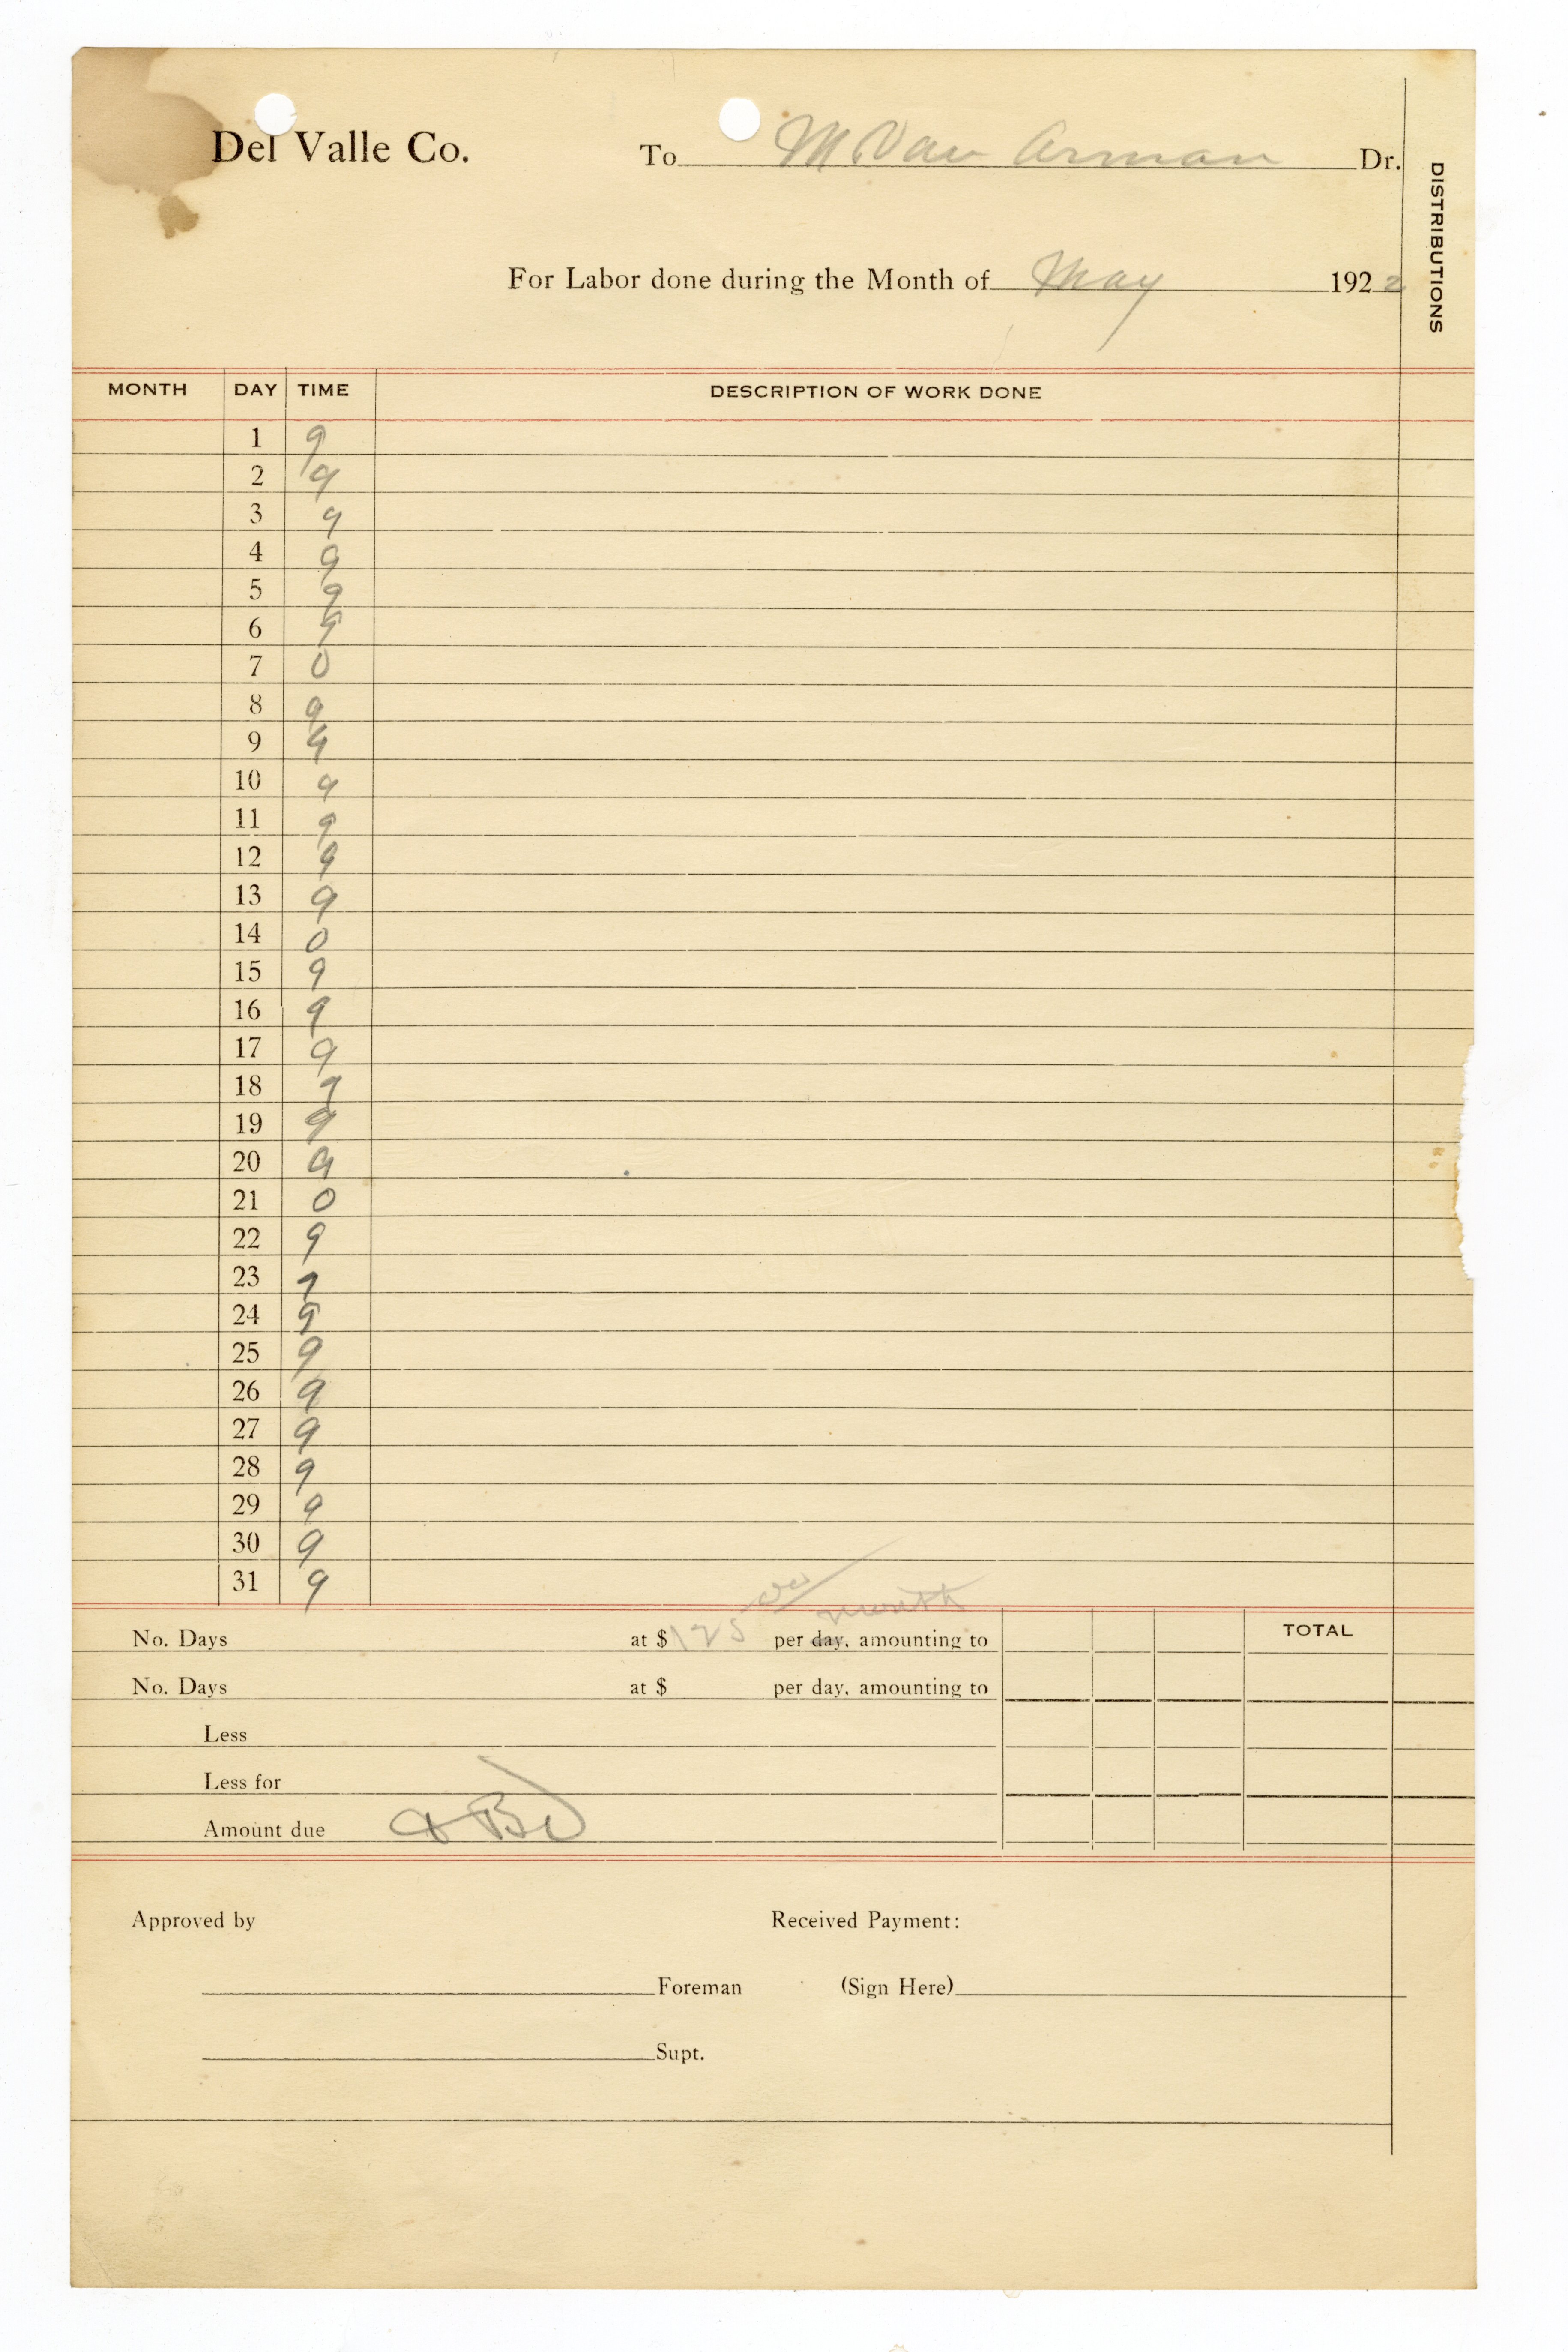 Del Valle Co. To M Van Arman Dr.
DISTRIBUTIONS
For Labor done during the Month of May 1922
MONTH DAY TIME DESCRIPTION OF WORK DONE
1 9
2 9
3 9
4 9
5 9
6 9
7 0
8 9
9 9
10 9
11 9
12 9
13 9
14 0
15 9
16 9
17 9
18 9
19 9
20 9
21 0
22 9
23 9
24 9
25 9
26 9
27 9
28 9
29 9
30 9
31 9
No. Days at $125 00/ per day, month amounting to TOTAL
No. Days at $ per day, amounting to
Less
Less for
Amount due
Approved by Received Payment:
Foreman (Sign Here)
Supt.